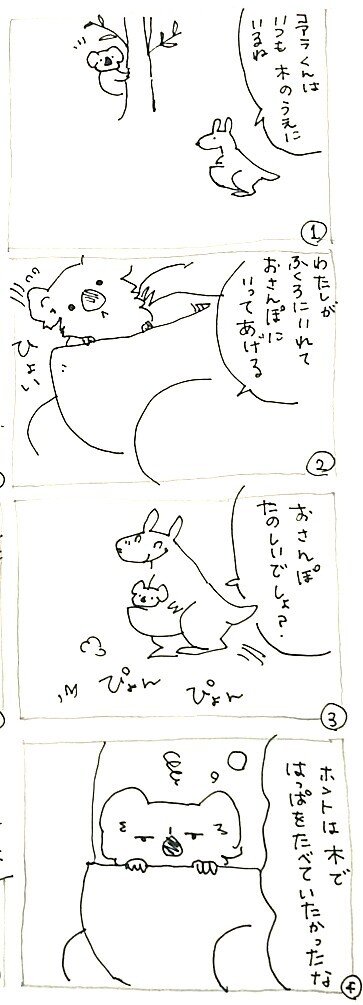 コアラくんは
いつも木のうえに
いるね
1
わたしが
ふくろにいれて
おさんぽに
いってあげる
ひょい
2
おさんぽ
たのしいでしょ?
ぴょん
ぴょん
3
ホントは木で
はっぱをたべていたかったな
4